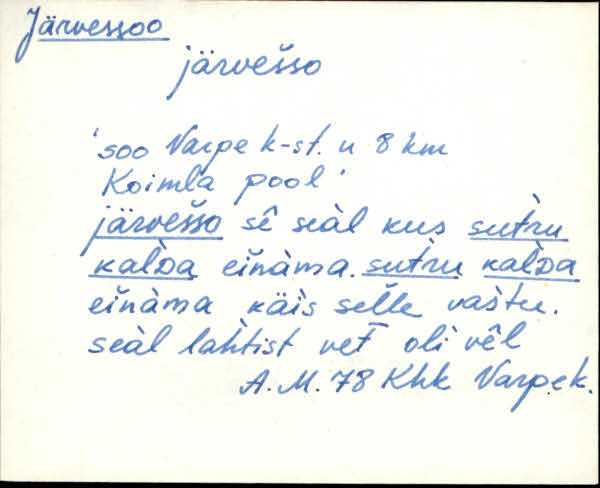 Järvessoo
järvešso
'soo Varpe k-st. u 8 km
Koimla pool'
järvešso sê seàl kus sutr̀u
kalD̀a eiǹàma. sutr̀u kalD̀a
eiǹàma käis selle vaštu.
seàl lahtist vet̄ oli vêl
A.M. 78 Khk Varpe k.